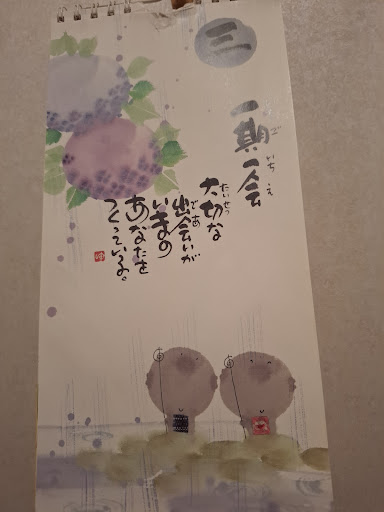 三
一期一会
ご いち え
大切な
たいせつ
出会いが
であ
いまの
あなたを
つくっている。